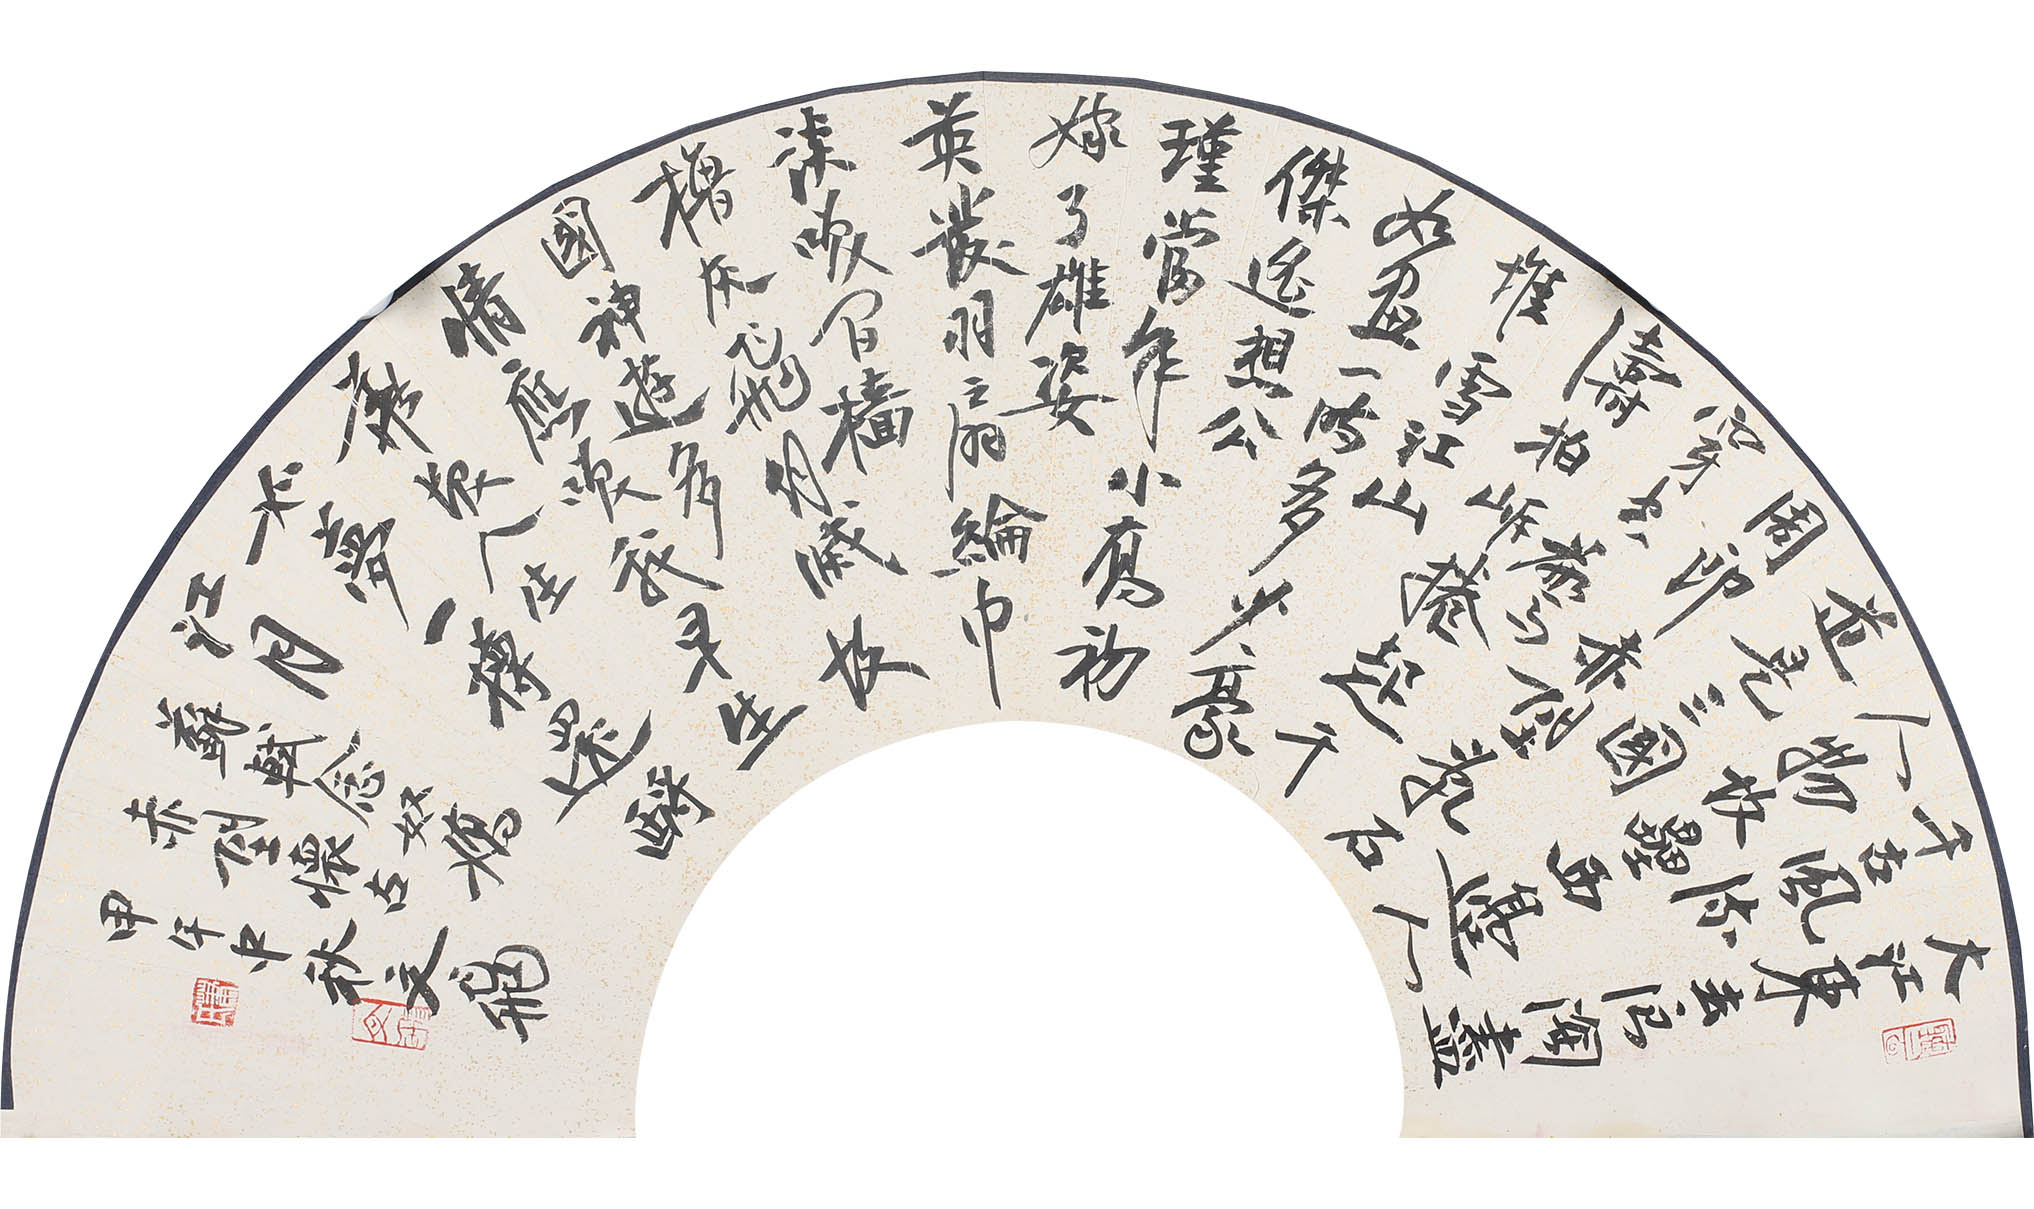 大江東去浪淘盡
千古風流
人物故壘西邊人
道是三國
周郎赤壁亂石
穿空驚
濤拍岸捲起千
堆雪江山
如畫一時多少豪
傑遙想公
瑾當年小喬初
嫁了雄姿
英發羽扇綸巾
談笑間檣
櫓灰飛烟滅故
國神遊多
情應笑我早生
華髮人生
如夢一樽還酹
江月
蘇軾念奴嬌
赤壁懷古
甲午中秋文